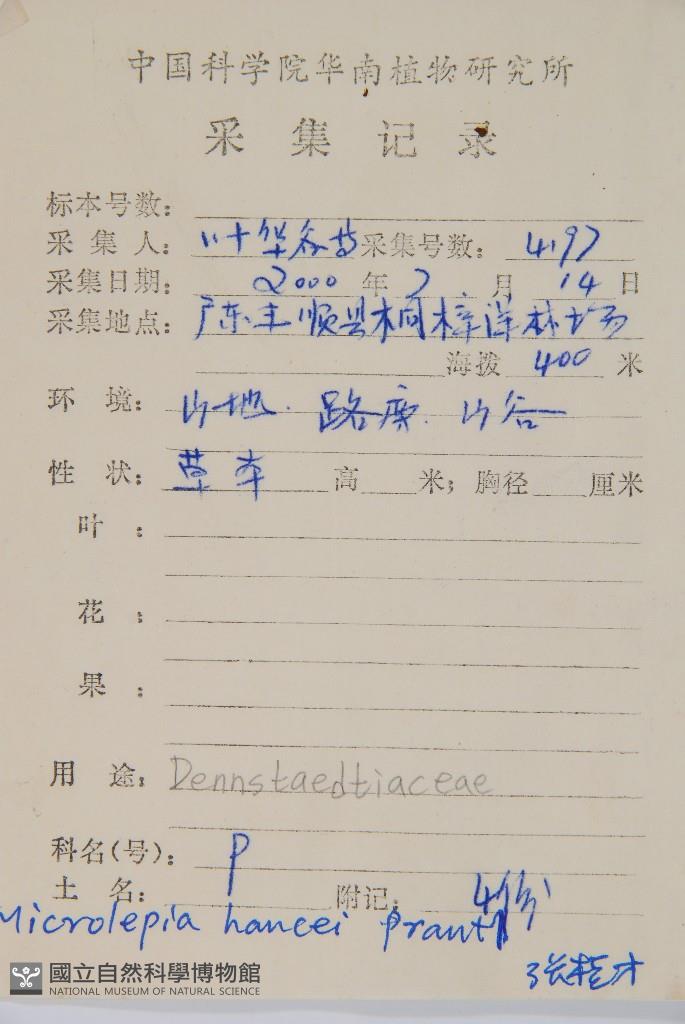 中国科学院华南植物研究所
采集记录
标本号数：
采集人：叶华谷等 采集号数：4197
采集日期：2000年7月14日
采集地点：广东丰顺县桐梓洋林场
海拨 400 米
环境：山地.路旁.山谷
性状：草本 高 米；胸径 厘米
叶：
花：
果：
用途：Dennstaedtiaceae
科名(号)：P
土名： 附记：4份
Microlepia hancei Prantl
张桂才
國立自然科學博物館
NATIONAL MUSEUM OF NATURAL SCIENCE